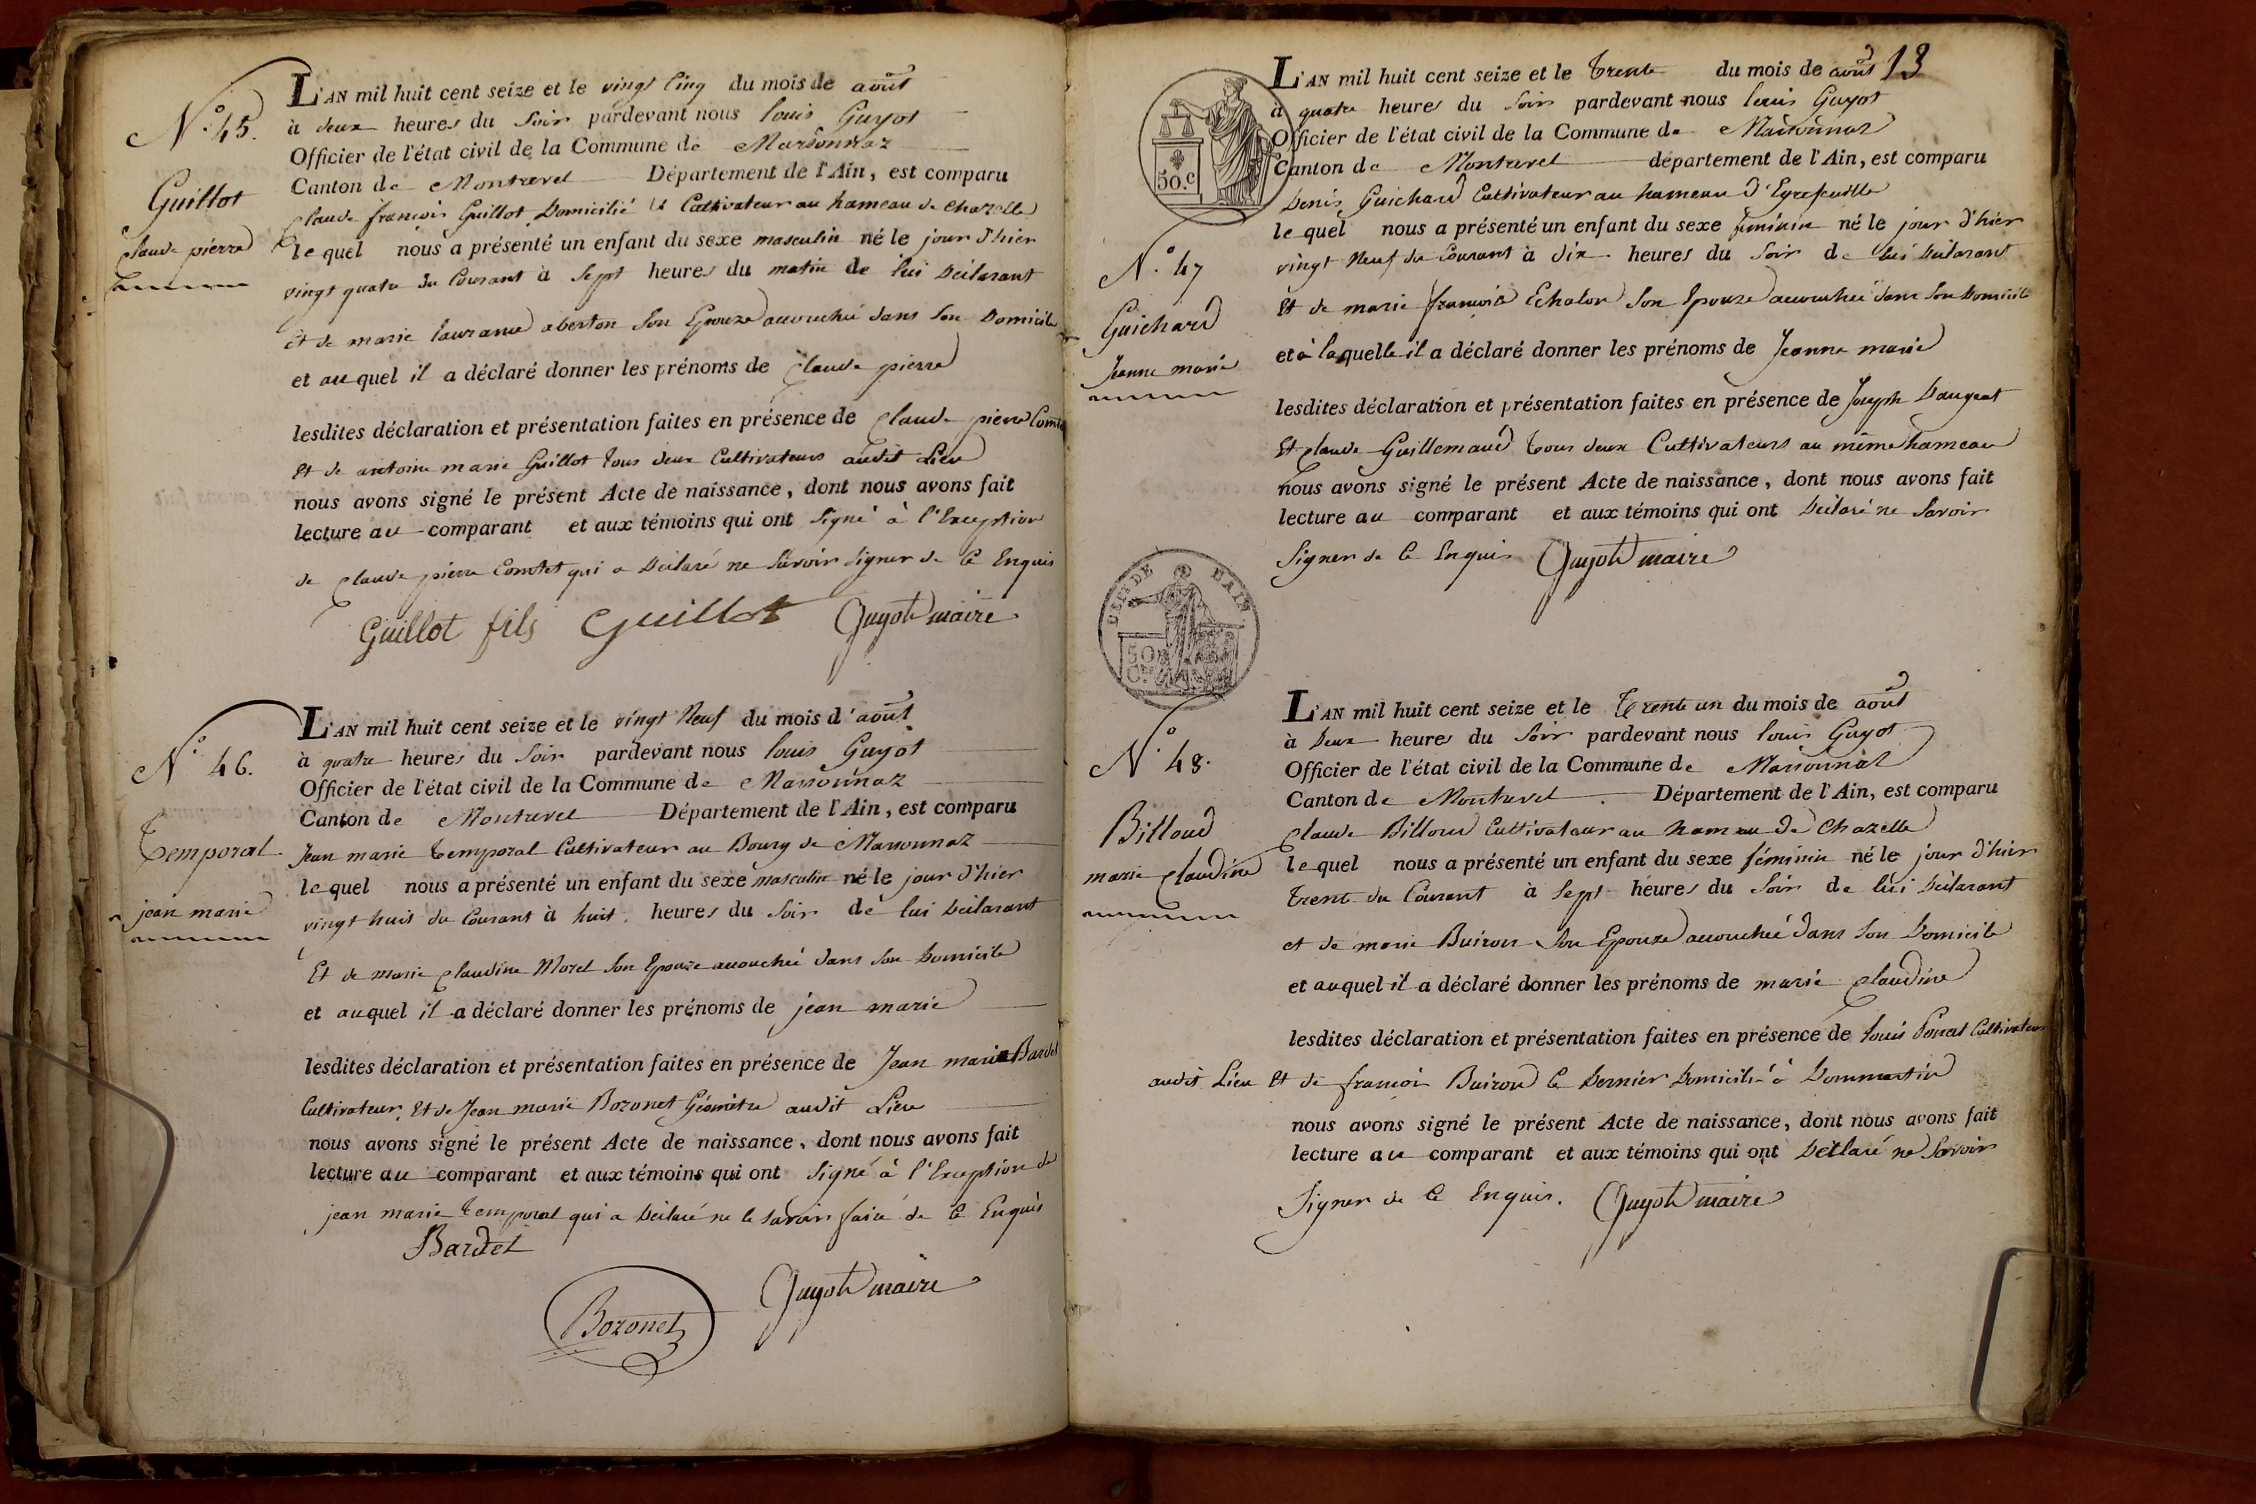 N.° 45.
Guillot
claude pierre
L'AN mil huit cent seize et le vingt cinq du mois de août
à deux heures du soir pardevant nous louis Guyot
Officier de l'état civil de la Commune de Marsonnaz
Canton de Montrevel Département de l'Ain, est comparu
claude françois Guillot Domicilié et Cultivateur au hameau de chazelle
lequel nous a présenté un enfant du sexe masculin né le jour d'hier
vingt quatre du Courant à sept heures du matin de lui Déclarant
et de marie laurance aberton son Epouze accouchée dans son Domicile
et auquel il a déclaré donner les prénoms de claude pierre
lesdites déclaration et présentation faites en présence de claude pierre Comtet
et de antoine marie Guillot tous deux Cultivateurs audit Lieu
nous avons signé le présent Acte de naissance, dont nous avons fait
lecture au comparant et aux témoins qui ont signé à l'Exception
de claude pierre Comtet qui a Déclaré ne savoir signer de ce Enquis
Guillot fils Guillot Guyot maire
N.° 46.
Temporal
jean marie
L'AN mil huit cent seize et le vingt neuf du mois d'août
à quatre heures du soir pardevant nous louis Guyot
Officier de l'état civil de la Commune de Marsonnaz
Canton de Montrevel Département de l'Ain, est comparu
Jean marie temporal Cultivateur au Bourg de Marsonnaz
lequel nous a présenté un enfant du sexe masculin né le jour d'hier
vingt huit du Courant à huit heures du soir de lui Déclarant
Et de marie claudine Morel son Epouze accouchée dans son Domicile
et auquel il a déclaré donner les prénoms de jean marie
lesdites déclaration et présentation faites en présence de Jean marie Bardet
Cultivateur, Et de Jean marie Bozonet Géomètre audit Lieu
nous avons signé le présent Acte de naissance, dont nous avons fait
lecture au comparant et aux témoins qui ont signé à l'Exception de
jean marie temporal qui a Déclaré ne le savoir faire de ce Enquis
Bardet
Bozonet Guyot maire
13
50.c
N.° 47
Guichard
Jeanne marie
L'AN mil huit cent seize et le trente du mois de août
à quatre heures du soir pardevant nous louis Guyot
Officier de l'état civil de la Commune de Marsonnaz
Canton de Montrevel département de l'Ain, est comparu
Denis Guichard Cultivateur au hameau d'Eyrefeuille
lequel nous a présenté un enfant du sexe feminin né le jour d'hier
vingt neuf du Courant à dix heures du soir de lui Déclarant
Et de marie françoise Echalon son Epouze accouchée dans son Domicile
et à laquelle il a déclaré donner les prénoms de Jeanne marie
lesdites déclaration et présentation faites en présence de Joseph
Et claude Guillemaud tous deux Cultivateurs au même hameau
nous avons signé le présent Acte de naissance, dont nous avons fait
lecture au comparant et aux témoins qui ont Déclaré ne savoir
signer de ce Enquis Guyot maire
N.° 48.
Billoud
marie claudine
L'AN mil huit cent seize et le trente un du mois de août
à Deux heures du soir pardevant nous louis Guyot
Officier de l'état civil de la Commune de Marsonnaz
Canton de Montrevel Département de l'Ain, est comparu
claude Billoud Cultivateur au hameau de chazelle
lequel nous a présenté un enfant du sexe féminin né le jour d'hier
trente du Courant à sept heures du soir de lui Déclarant
et de marie Buiron son Epouze accouchée dans son Domicile
et auquel il a déclaré donner les prénoms de marie claudine
lesdites déclaration et présentation faites en présence de louis Cultivateur
audit Lieu Et de françois Buiron ce Dernier Domicilié à Dommartin
nous avons signé le présent Acte de naissance, dont nous avons fait
lecture au comparant et aux témoins qui ont Déclaré ne savoir
signer de ce Enquis. Guyot maire